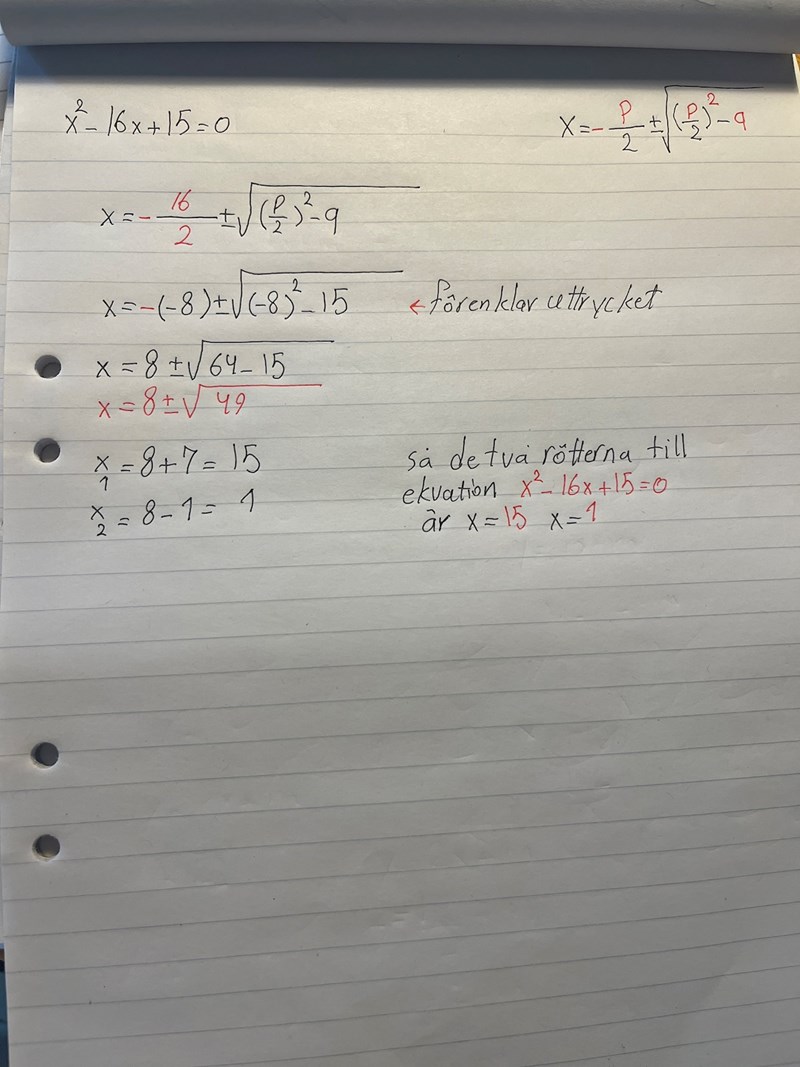 x² - 16x + 15 = 0
x = - p/2 ± √((p/2)² - q)
x = - 16/2 ± √((p/2)² - q)
x = -(-8) ± √((-8)² - 15) ← förenklar uttrycket
x = 8 ± √(64 - 15)
x = 8 ± √49
x₁ = 8 + 7 = 15
x₂ = 8 - 1 = 1
så de två rötterna till
ekvation x² - 16x + 15 = 0
är x = 15 x = 1